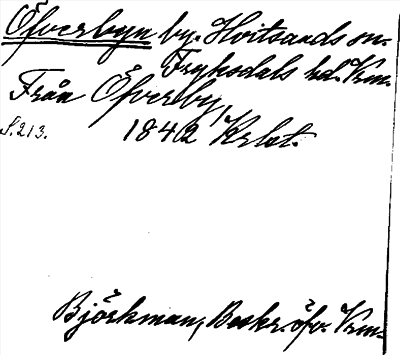 Öfverbyn by. Hvitsands sn.
Fryksdals hd. Vrm.
Från Öfverby,
S. 213. 1842 Krbt.
Björkman, Beskr. öfv. Vrm.